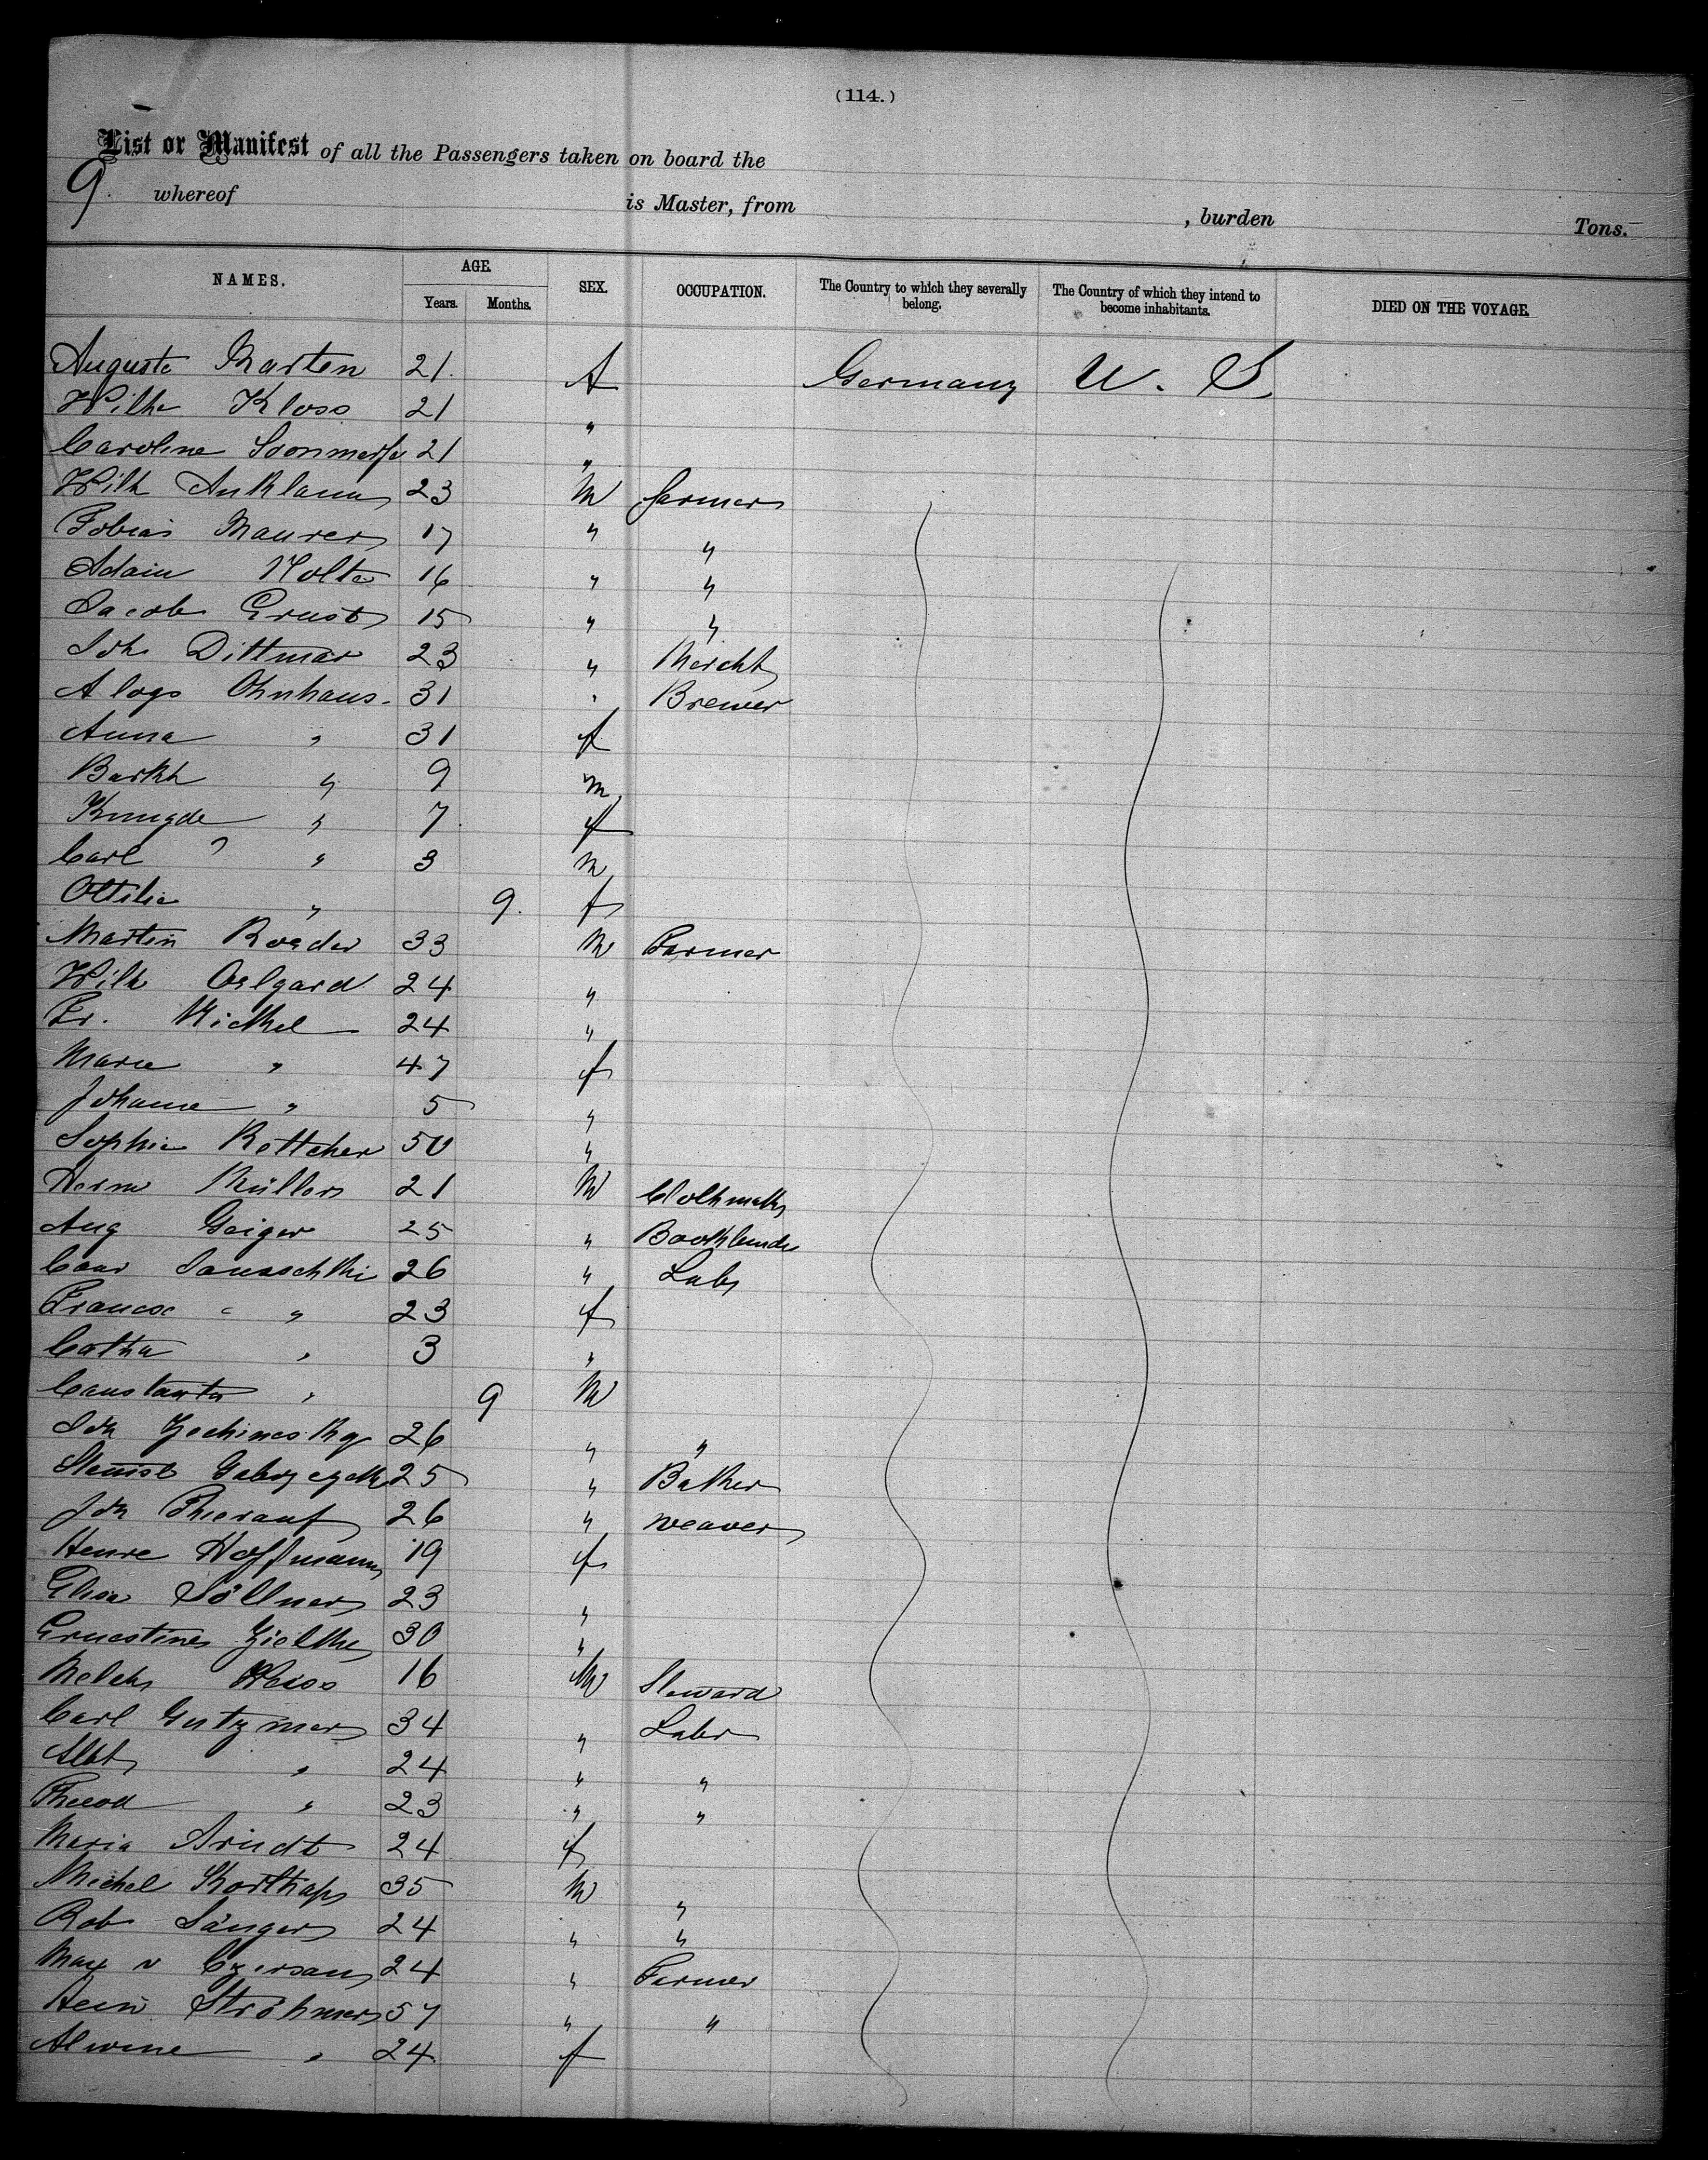 (114.)
List or Manifest of all the Passengers taken on board the
9. whereof is Master, from , burden Tons.
NAMES. AGE. SEX. OCCUPATION. The Country to which they severally belong. The Country of which they intend to become inhabitants. DIED ON THE VOYAGE.
Years. Months.
Auguste Marten 21. f Germany U. S.
Wilh Kloss 21 "
Caroline 21 "
Wilh Anklam 23 M farmer
Tobias Maurer 17 " "
Adam Nolte 16 " "
Jacob Ernst 15 " "
Joh Dittmar 23 " Mercht
Aloys Ohnhaus. 31 " Brewer
Anna " 31 f
Barkh " 9 m
" 7 f
Carl " 3 M
Ottilie " 9. f
Martin Roeder 33 M Farmer
Wilh Oelgard 24 "
Fr. Michel 24 "
Marie " 47 f
Johanne " 5 "
Sophie Rottcher 50 "
Herm Müller 21 M Clothmakr
Aug Geiger 25 " Bookbinder
26 " Labr
" 23 f
Catha " 3 "
" 9 M
Joh 26 " "
25 " Baker
Joh Thierauf 26 " weaver
Henre Hoffmann 19 f
Elisa Söllner 23 "
Ernestine Zielke 30 "
Melchr Weiss 16 M Steward
Carl Gutzmer 34 " Labr
Albt " 24 " "
Theod " 23 " "
Maria Arndt 24 f
Michel 35 M "
Rob Sänger 24 " "
Max v 24 " Farmer
Heinr Ströhmer 57 " "
Alwine " 24 f